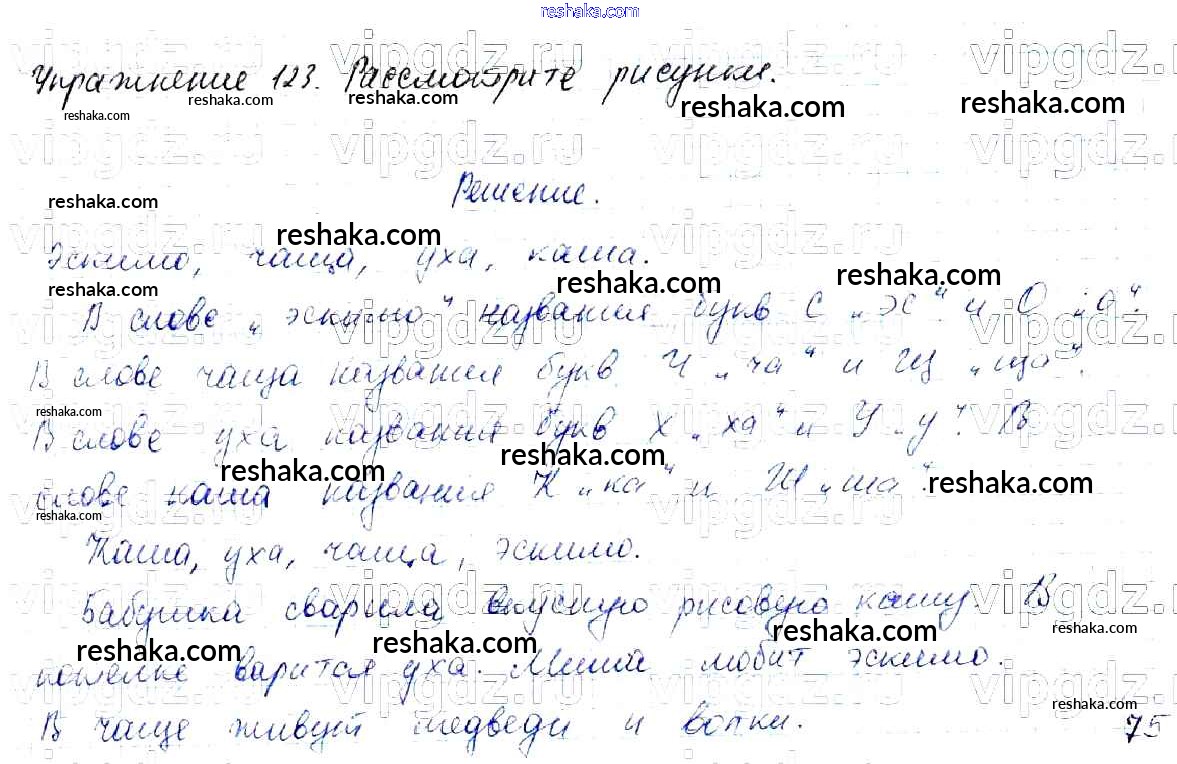 reshaka.com
Упражнение 123. Рассмотрите рисунки.
Решение.
Эскимо, чаща, уха, каша.
В слове „эскимо" названия букв С „эс" и О „о".
В слове чаща названия букв Ч „ча" и Щ „ща".
В слове уха названия букв Х „ха" и У „у". В
слове каша названия К „ка" и Ш „ша".
Каша, уха, чаща, эскимо.
Бабушка сварила вкусную рисовую кашу. В
котелке варится уха. Миша любит эскимо.
В чаще живут медведи и волки.
75